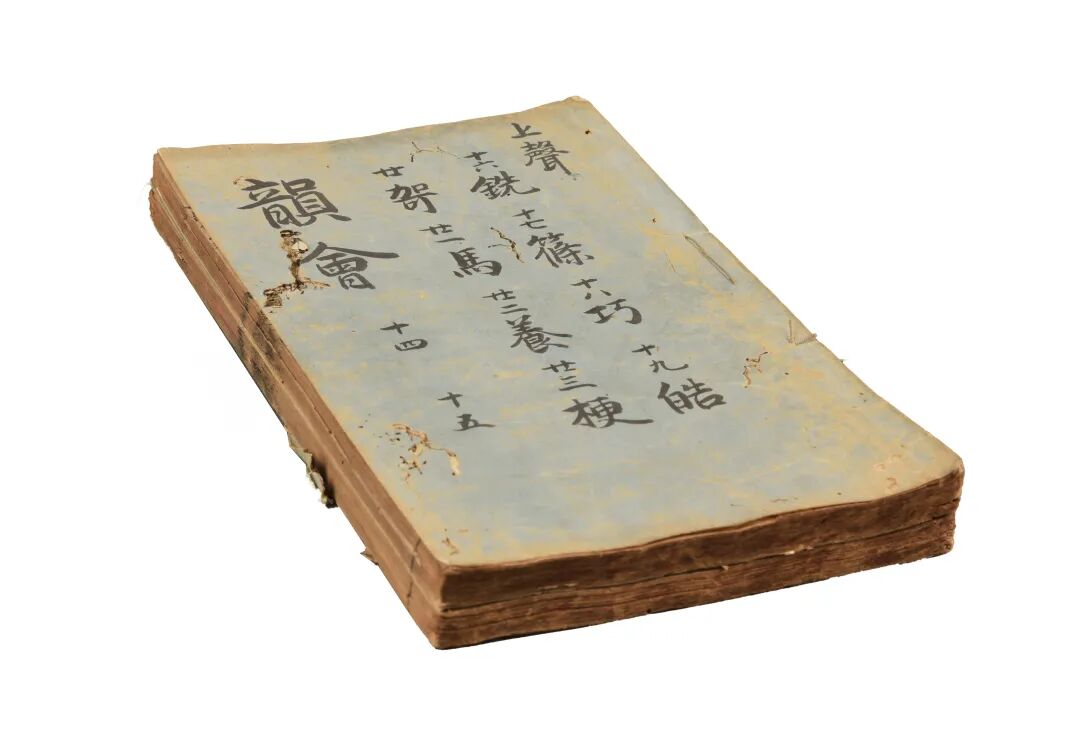 上聲
十六銑 十七篠 十八巧 十九皓
廿哿 廿一馬 廿二養 廿三梗
韻會
十四 十五